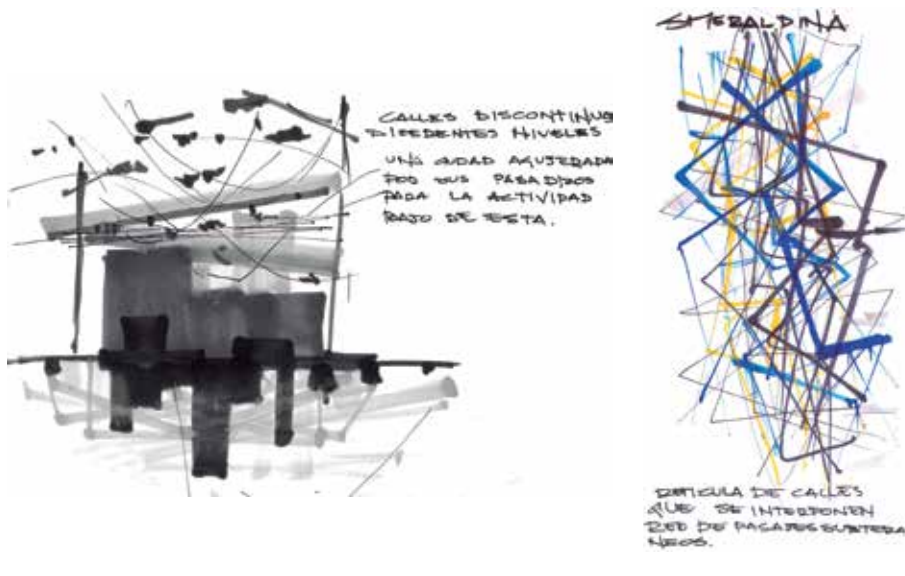 CALLES DISCONTINUS
DIFERENTES NIVELES
UNA CIUDAD AGUJERADA
POR SUS PASADIZOS
PARA LA ACTIVIDAD
BAJO DE ESTA.
SMERALDINA
RETICULA DE CALLES
QUE SE INTERPONEN
RED DE PASAJES SUBTERA
NEOS.